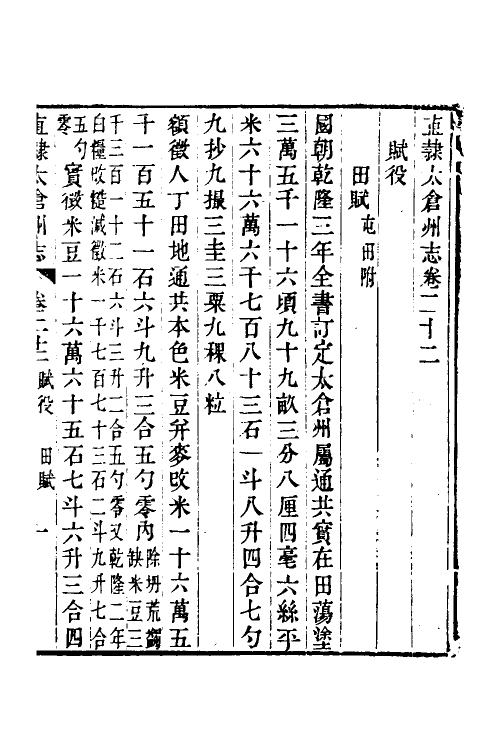 直隸太倉州志卷二十二
賦役
田賦 屯田附
國朝乾隆三年全書訂定太倉州屬通共實在田蕩塗
三萬五千一十六頃九十九畝三分八厘四毫六絲平
米六十六萬六千七百八十三石一斗八升四合七勺
九抄九撮三圭三粟九稞八粒
額徵人丁田地通共本色米豆并麥改米一十六萬五
千一百五十一石六斗九升三合五勺零內 除坍荒蠲缺米豆三
千三百一十二石六斗三升二合五勺零又乾隆二年
白糧改糙減徵米一千七百七十三石二斗九升七合
五勺零 實徵米豆一十六萬六十五石七斗六升三合四
直隸太倉州志 卷二十二 賦役 田賦 一